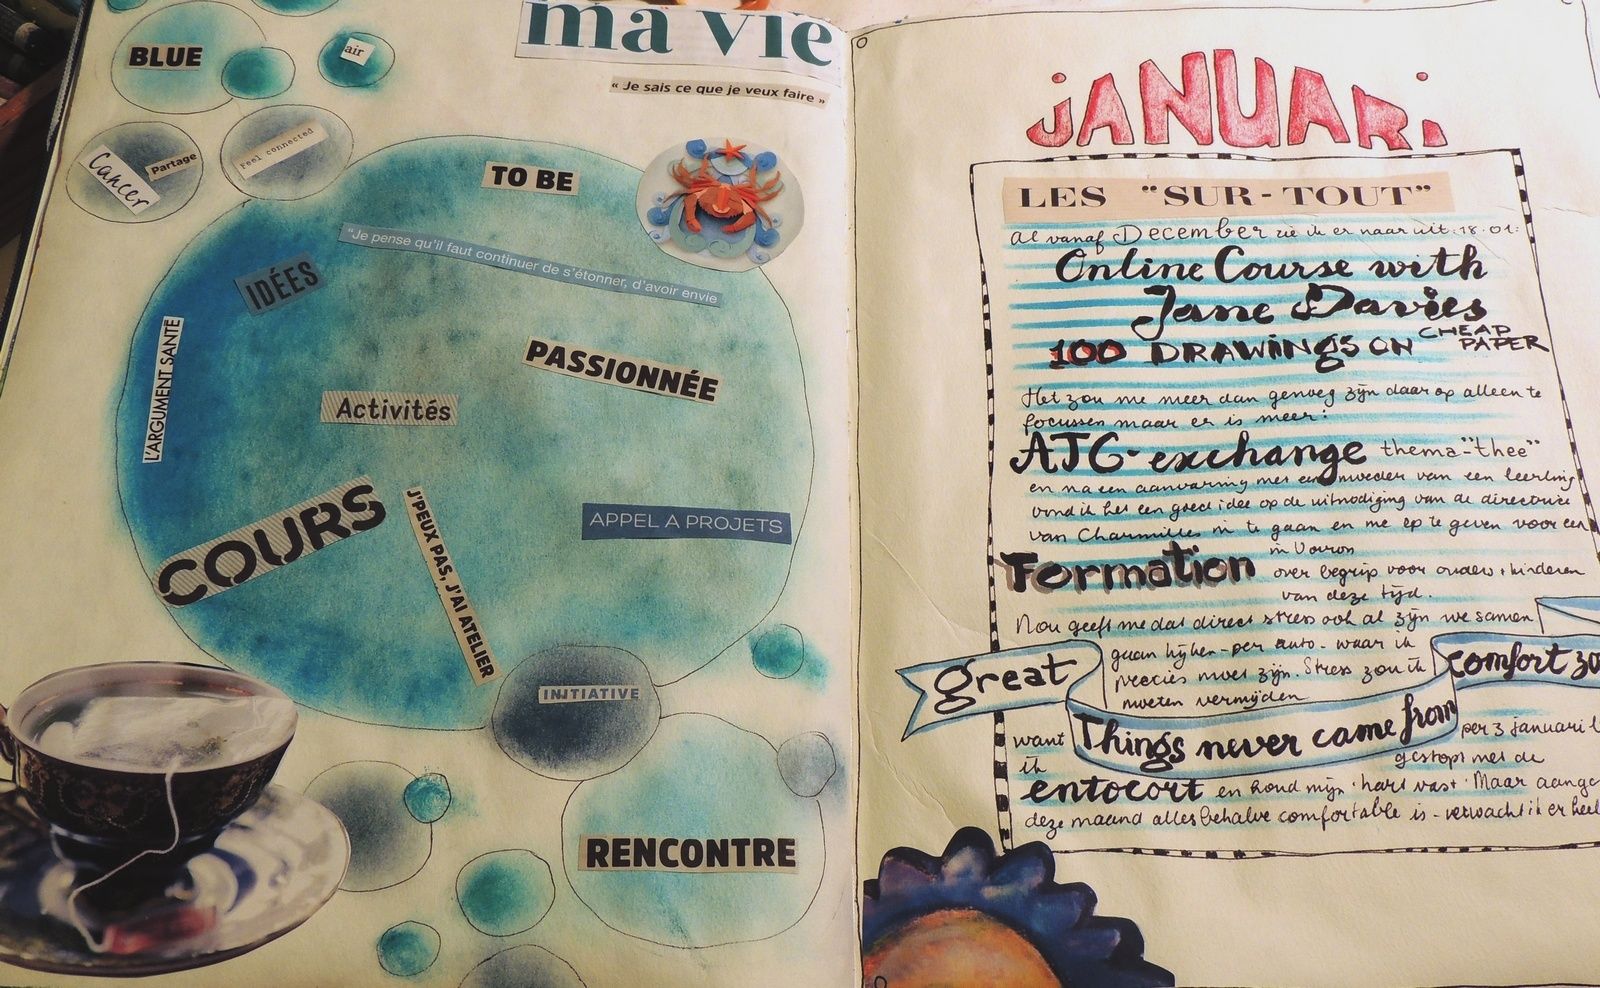 ma vie
« Je sais ce que je veux faire »
BLUE
air
Cancer
Partage
Feel connected
TO BE
"Je pense qu'il faut continuer de s'étonner, d'avoir envie
IDÉES
L'ARGUMENT SANTÉ
PASSIONNÉE
Activités
COURS
J'PEUX PAS, J'AI ATELIER
APPEL A PROJETS
INITIATIVE
RENCONTRE
jANUARi
LES "SUR-TOUT"
Al vanaf December zie ik er naar uit: 18.01:
Online Course with
Jane Davies
100 DRAWiNgS ON CHEAP PAPER
Het zou me meer dan genoeg zijn daar op alleen te
focussen maar er is meer:
ATG-exchange thema "thee"
en na een aanvaring met een moeder van een leerling
vond ik het een goed idee op de uitnodiging van de directrice
van Charmilles in te gaan en me op te geven voor een
in Voiron
Formation over begrip voor ouders + kinderen
van deze tijd.
Nou geeft me dat direct stress ook al zijn we samen
gaan kijken - per auto - waar ik
precies moet zijn. Stress zou ik
moeten vermijden
great
Things never came from
comfort zo
want ik per 3 januari
gestopt met de
entocort en houd mijn hart vast. Maar aange
deze maand alles behalve comfortable is - verwacht ik er heel